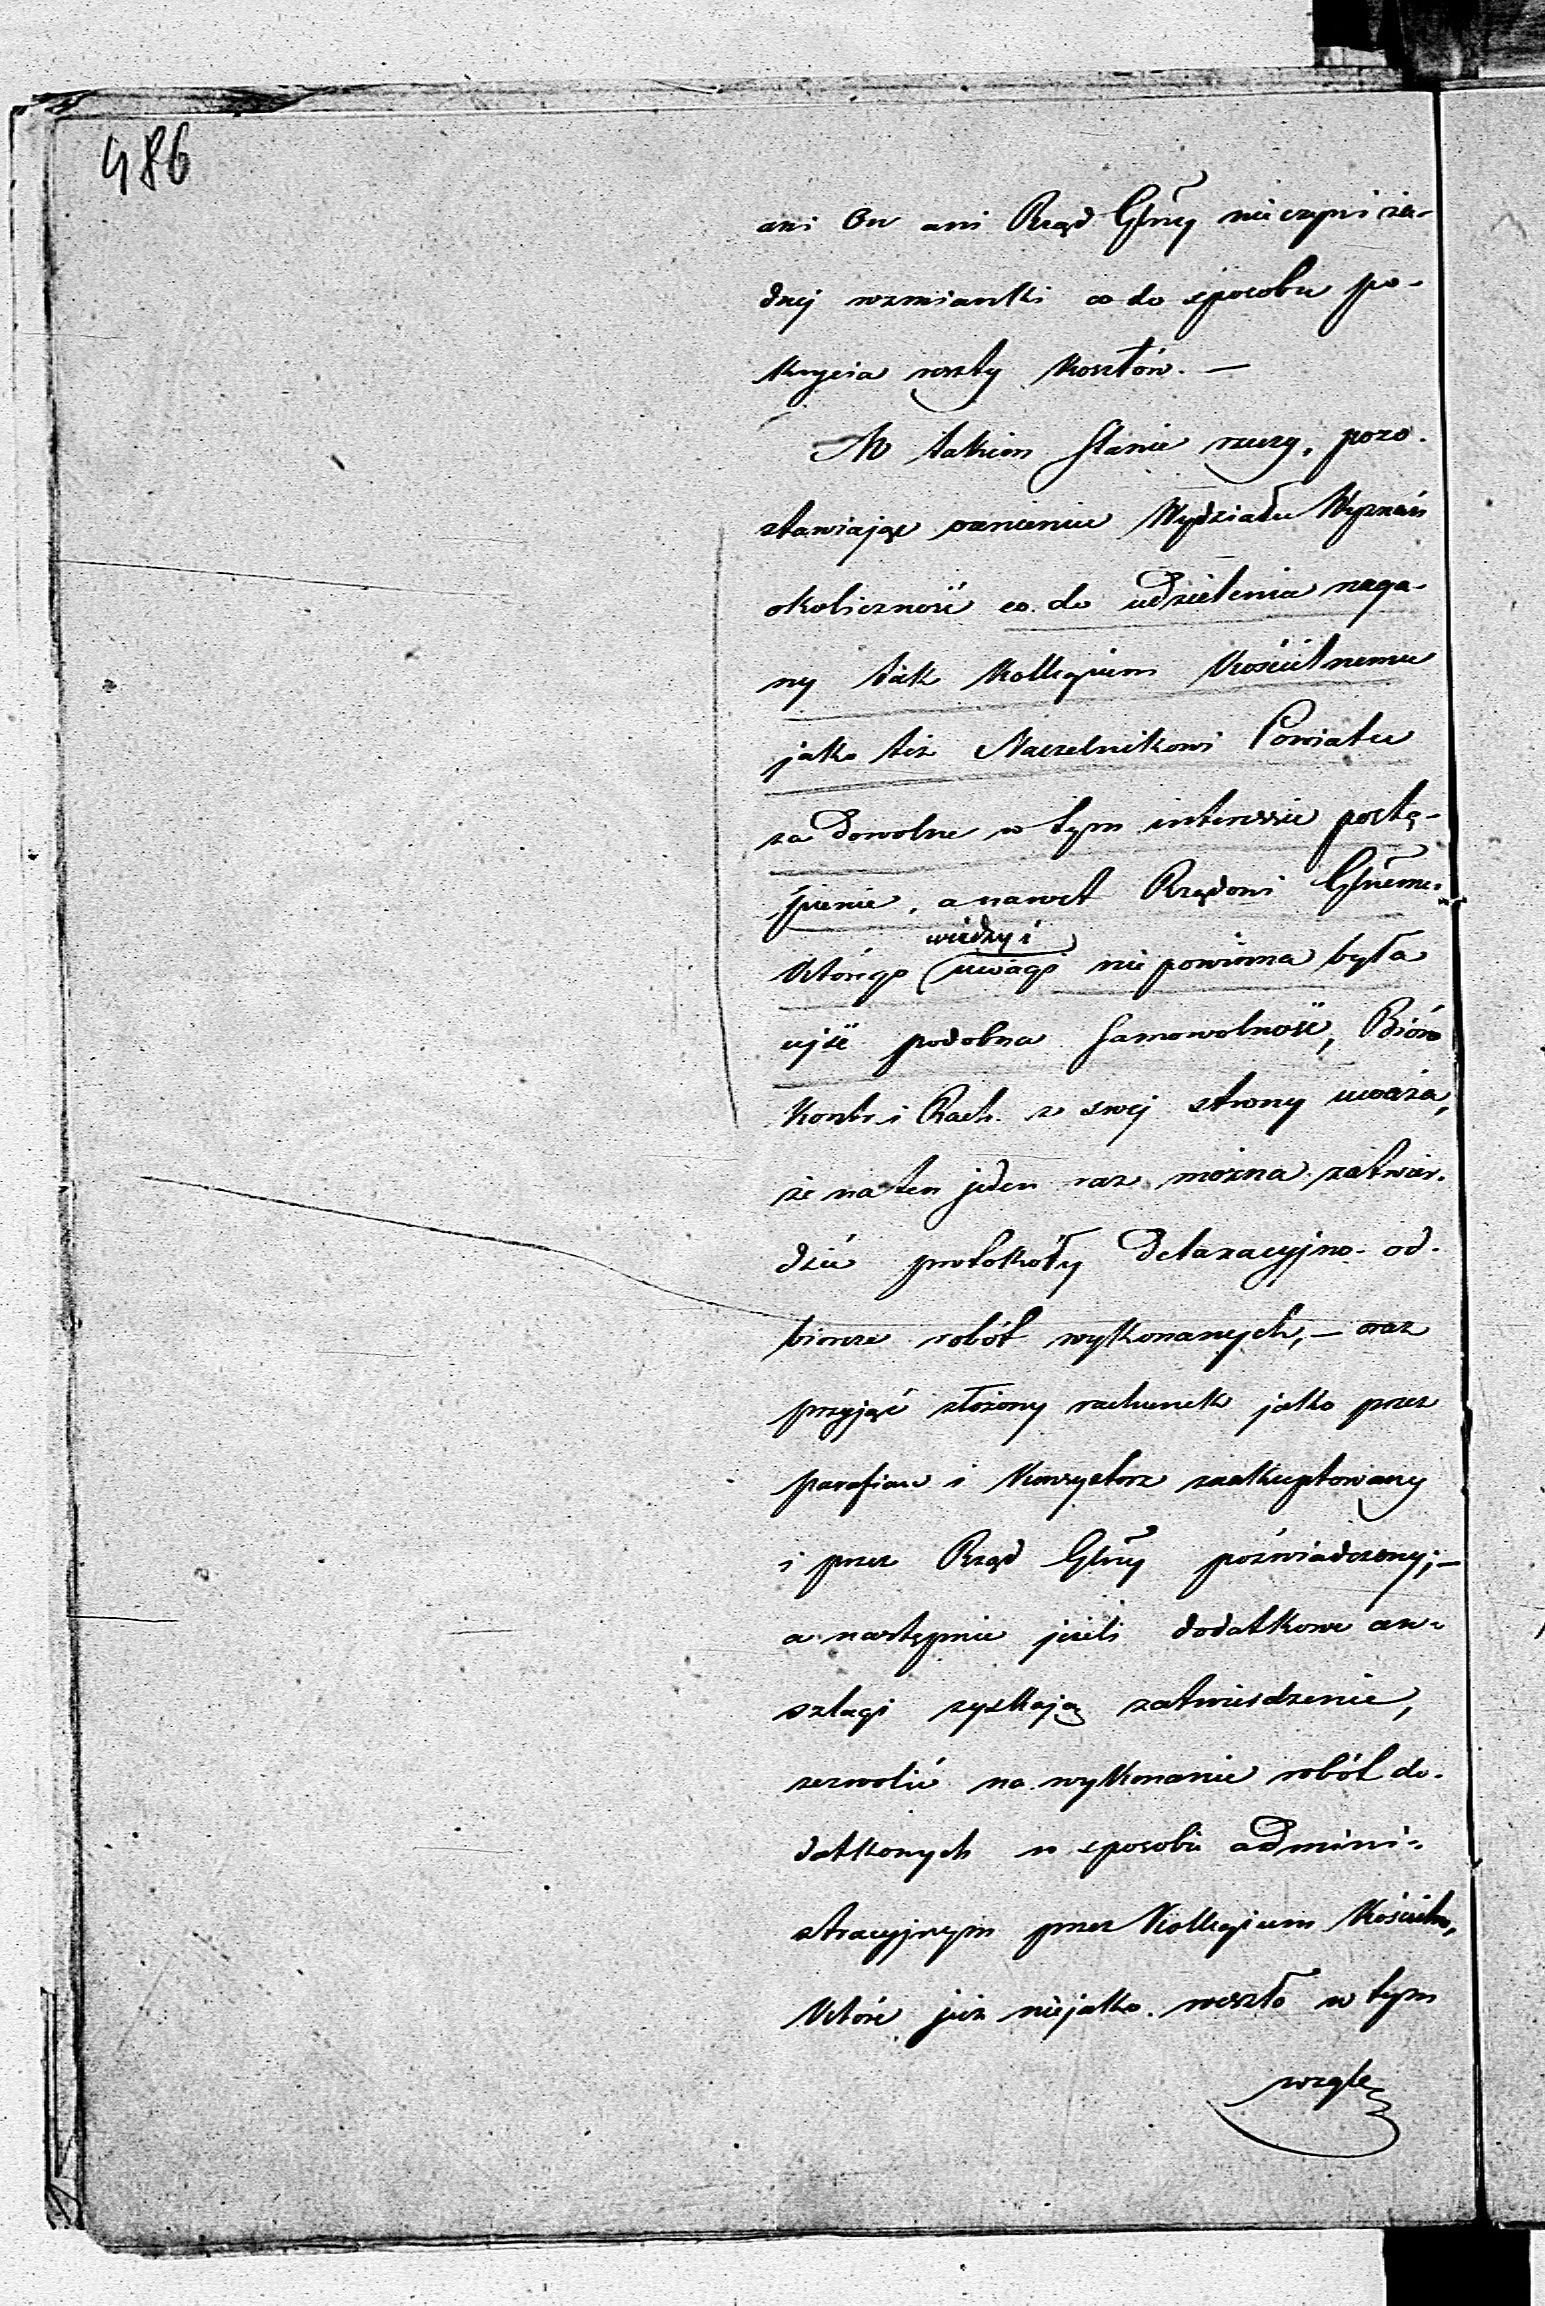 486
ani On ani Rząd Głny nie czyni ża-
dnej wzmianki co do sposobu po-
krycia reszty kosztów. —
W takim stanie rzeczy, pozo-
stawiając ocenieniu Wydziału Wyznań
okoliczność co do udzielenia naga-
ny tak Kollegium Kościelnemu
jako też Naczelnikowi Powiatu
za dowolne w tym interessie postę-
pienie, a nawet Rządowi Głnemu
wiedzy i
którego uwagi nie powinna była
ujść podobna samowolność, Bióro
Kontr. i Rach. z swej strony uważa,
że na ten jeden raz można zatwier-
dzić protokóły detaxacyjno-od-
biorcze robót wykonanych, — oraz
przyjąć złożony rachunek jako przez
parafian i Konsystorz zaakceptowany
i przez Rząd Głny poświadczony; —
a następnie jeżeli dodatkowe an-
szlagi zyskają zatwierdzenie,
zezwolić na wykonanie robót do-
datkowych w sposobie admini-
stracyjnym przez Kollegium Kościelne,
które już niejako weszło w tym
wzglę